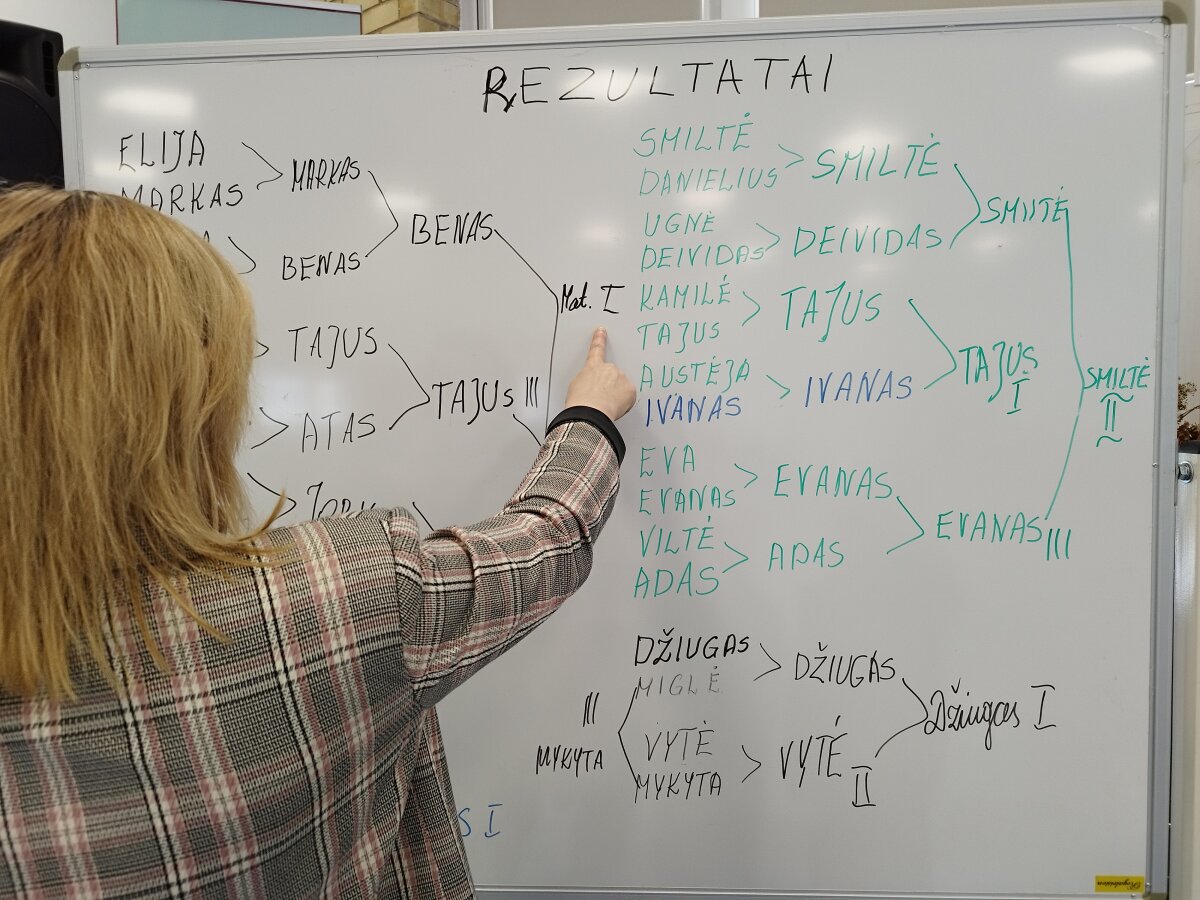 REZULTATAI
ELIJA
MARKAS
MARKAS
BENAS
BENAS
TAJUS
ATAS
TAJUS III
Mat. I
S I
SMILTĖ
DANIELIUS
SMILTĖ
UGNĖ
DEIVIDAS
DEIVIDAS
SMILTĖ
KAMILĖ
TAJUS
TAJUS
AUSTĖJA
IVANAS
IVANAS
TAJUS
I
SMILTĖ
II
EVA
EVANAS
EVANAS
VILTĖ
ADAS
ADAS
EVANAS III
DŽIUGAS
MIGLĖ
DŽIUGAS
III
MYKYTA
VYTĖ
MYKYTA
VYTĖ II
Džiugas I